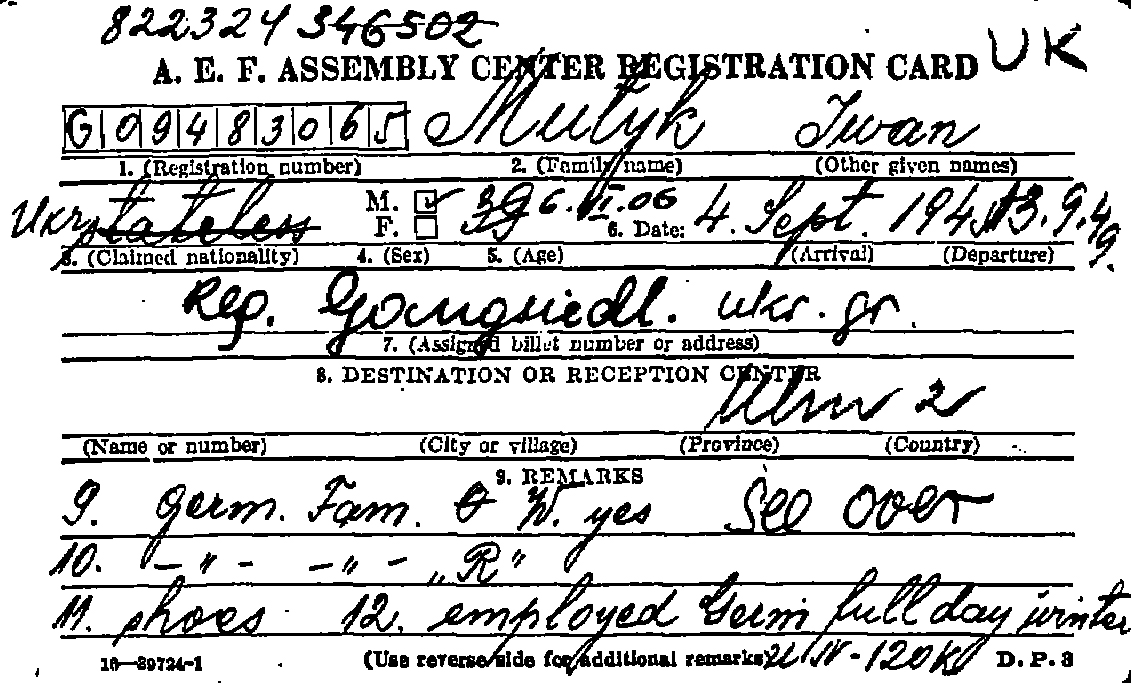 822324 346502
A. E. F. ASSEMBLY CENTER REGISTRATION CARD UK
G 0 9 4 8 3 0 6 5 Mutyk Iwan
1. (Registration number) 2. (Family name) (Other given names)
Ukr stateless M. F. 39 6.VI.06 6. Date: 4. Sept. 1945 13.9.49.
3. (Claimed nationality) 4. (Sex) 5. (Age) (Arrival) (Departure)
Rep. ukr. gr.
7. (Assigned billet number or address)
8. DESTINATION OR RECEPTION CENTER
Ulm 2
(Name or number) (City or village) (Province) (Country)
9. REMARKS
9. germ. Fam. W. yes See over
10. – " – – " – „R"
11. shoes 12. employed Germ full day winter
16—39724-1 (Use reverse side for additional remarks) D. P. 3